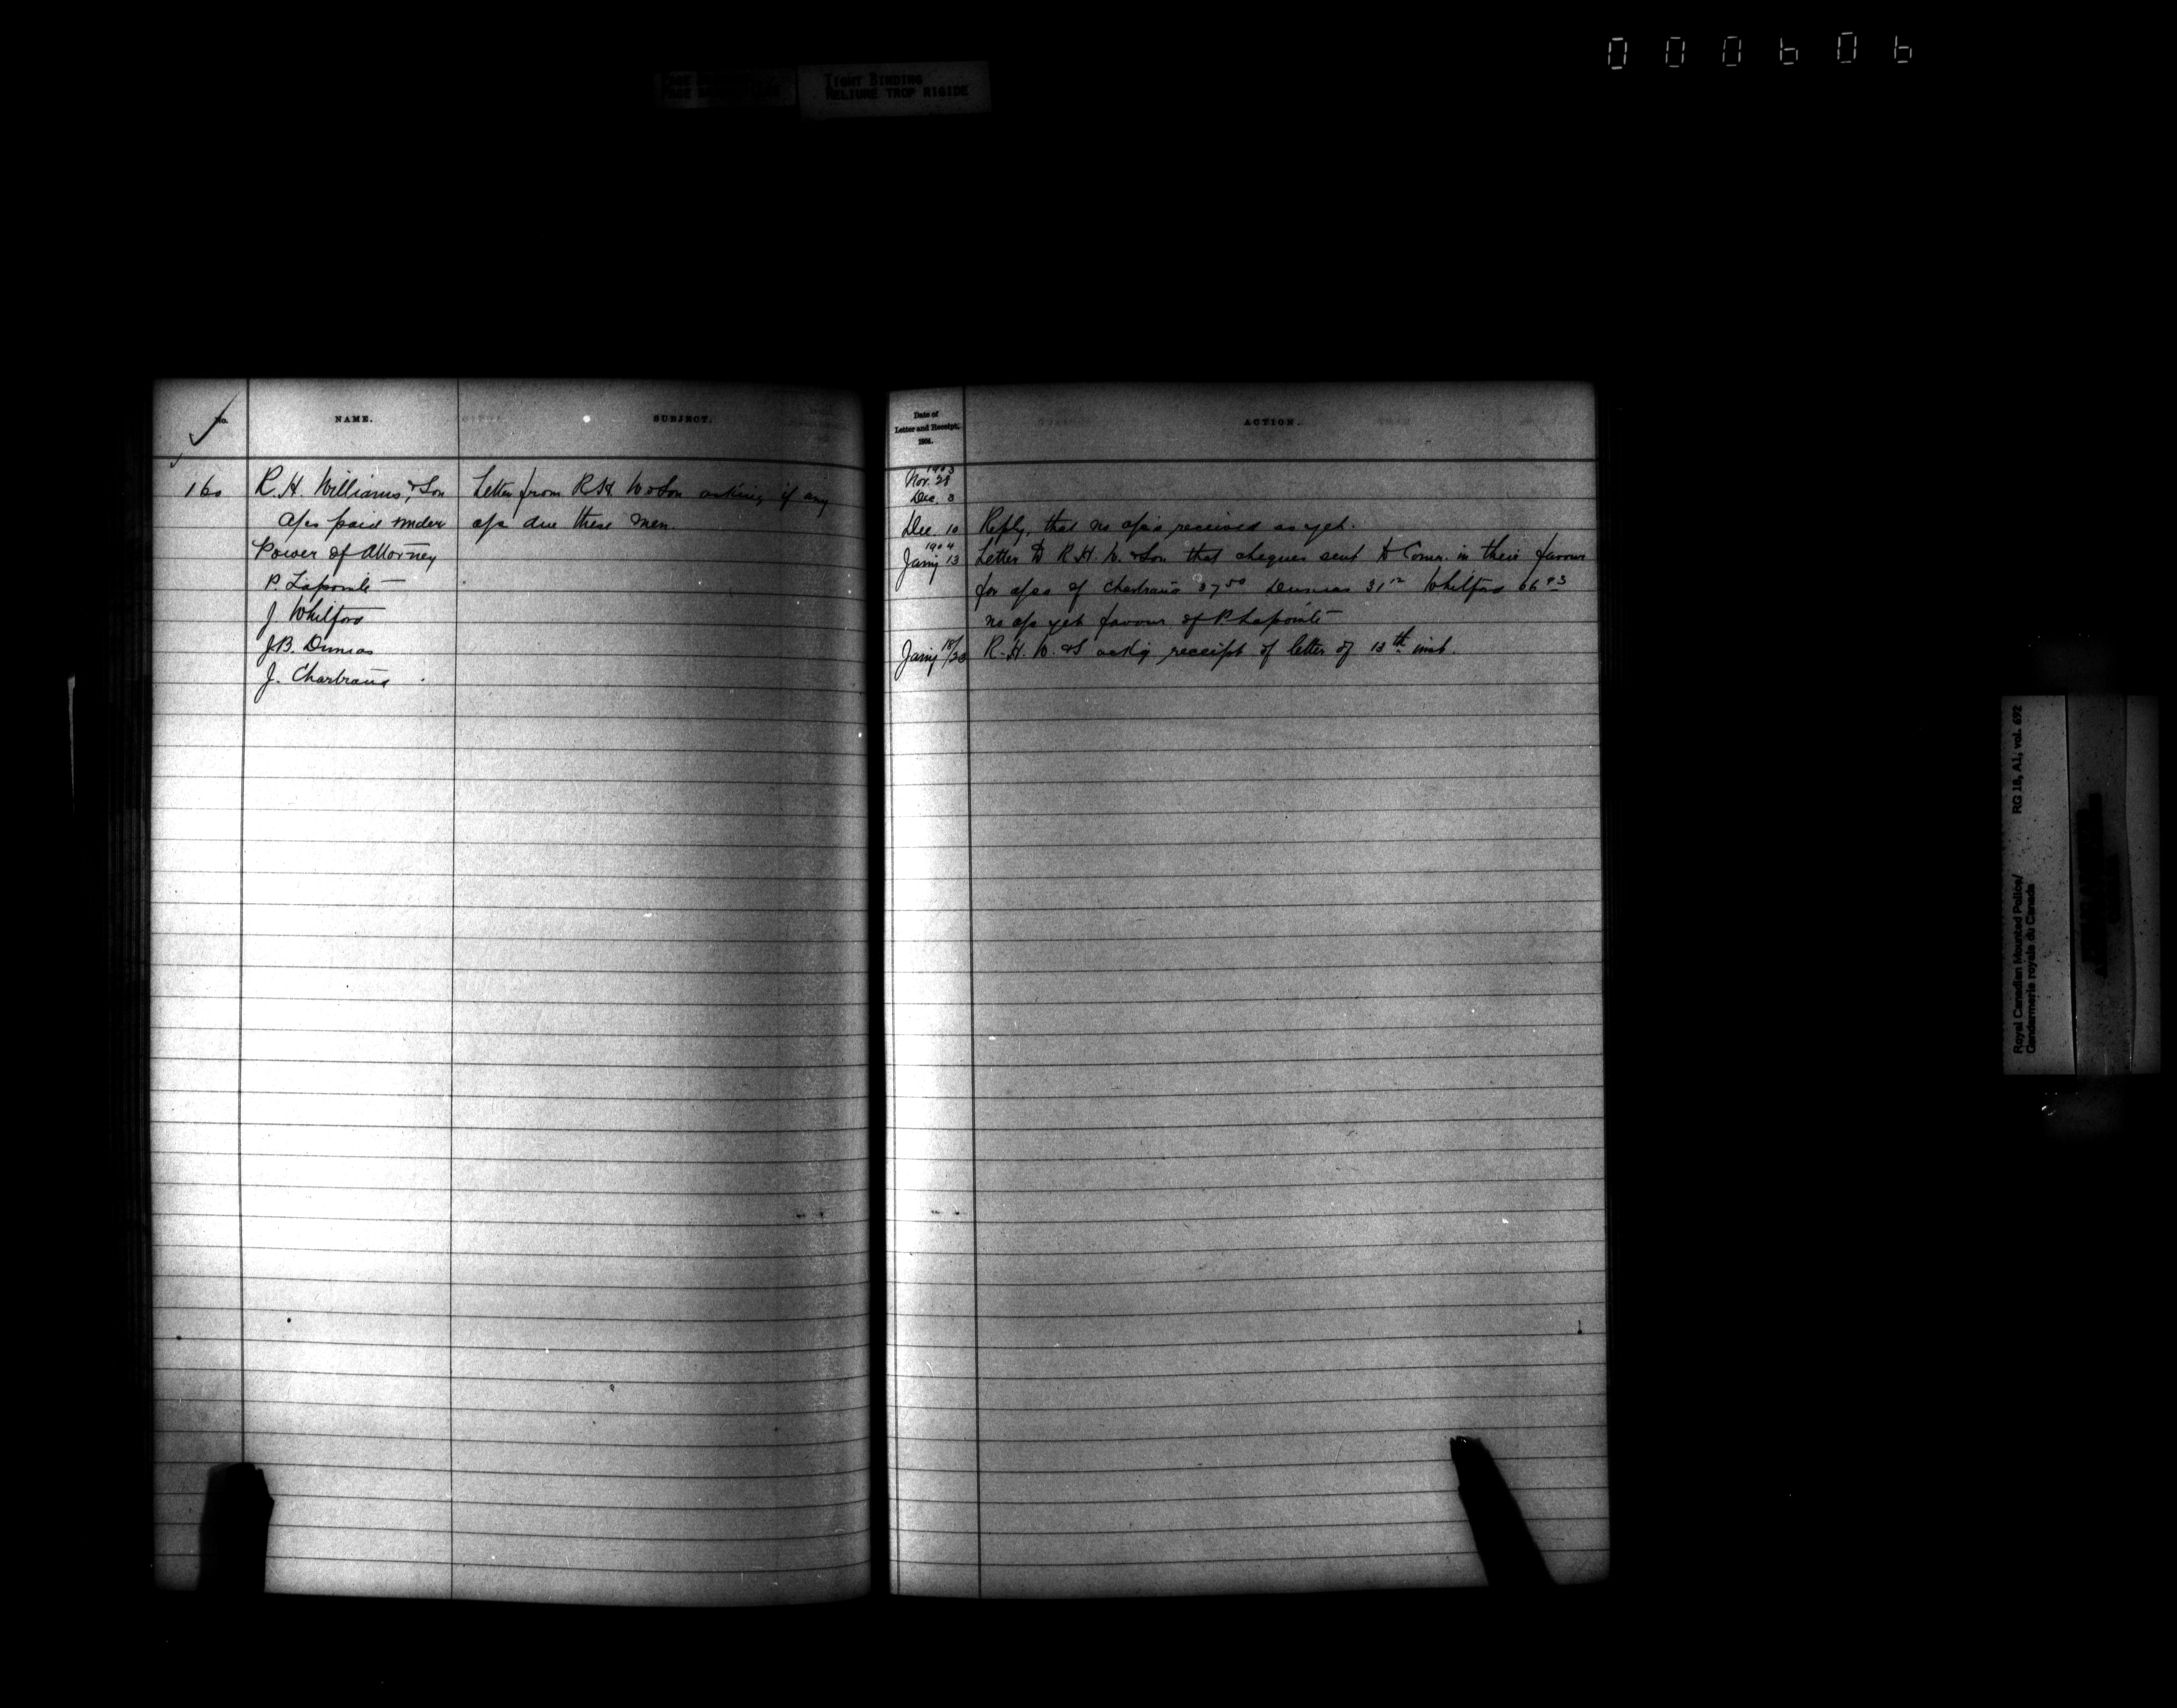 000606
TIGHT BINDING
RELIURE TROP RIGIDE
No.
NAME.
SUBJECT.
160
R. H. Williams, & Son
a/cs paid under
Power of Attorney
P. Lapointe
J Whitford
J.B. Dumas
J. Chartrand
Letter from R H W & Son asking if any
a/cs due these men.
Date of
Letter and Receipt,
1904.
ACTION.
1903
Nov. 28
Dec. 3
Dec. 10 Reply, that no a/cs received as yet.
1904
Jany 13 Letter to R. H. W. & Son that cheques sent to Comr. in their favour
for a/cs of Chartrand 37 50 Dumas 31 12 Whitford 66
no a/c yet favour of P. Lapointe
Jany 18/23 R. H. W. & S ackg receipt of letter of 13th inst.
Royal Canadian Mounted Police/ RG 18, A1, vol. 692
Gendarmerie royale du Canada